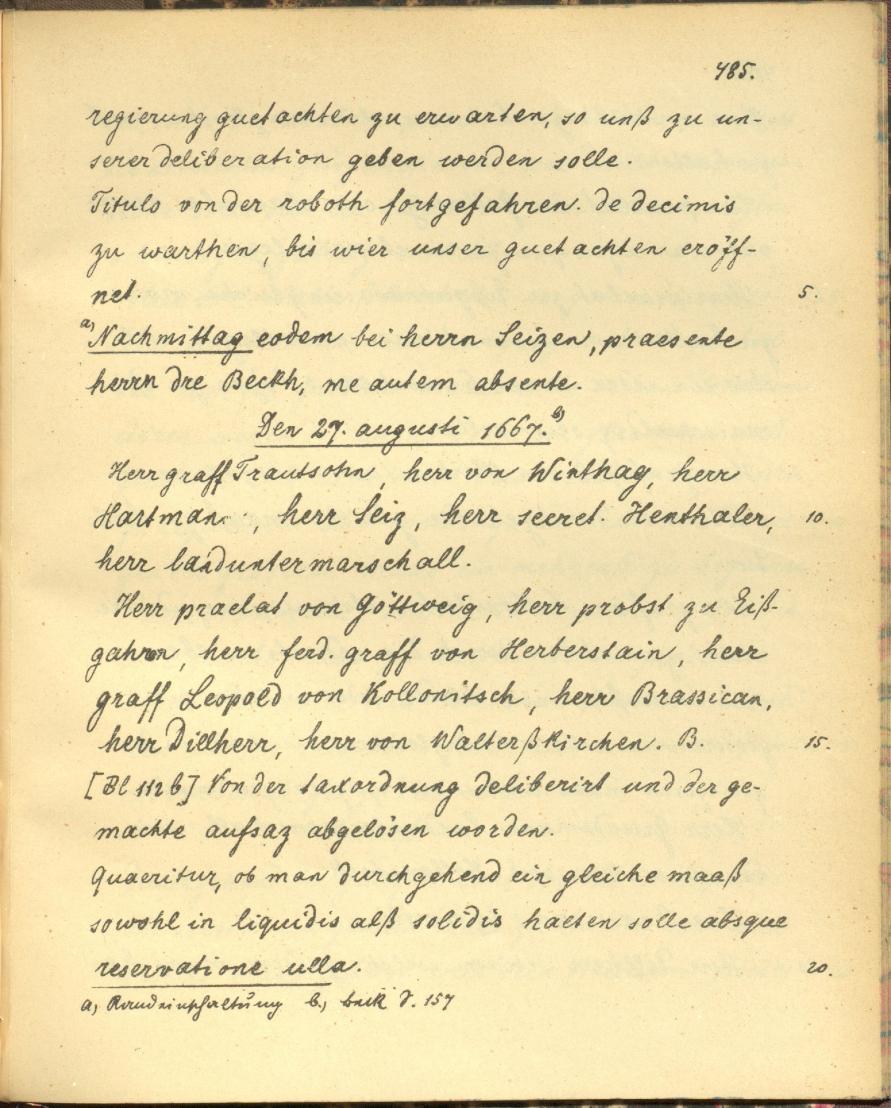 485.
regierung guetachten zu erwarten, so unß zu un-
serer deliberation geben werden solle.
Titulo von der roboth fortgefahren. de decimis
zu warthen, bis wier unser guetachten eröff-
net. 5.
a) Nachmittag eodem bei herrn Seizen, praesente
herrn dre Beckh, me autem absente.
Den 27. augusti 1667. b)
Herr graff Trautsohn, herr von Winthag, herr
Hartman, herr Seiz, herr secret. Henthaler, 10.
herr landuntermarschall.
Herr praelat von Göttweig, herr probst zu Eiß-
garn, herr ferd. graff von Herberstain, herr
graff Leopold von Kollonitsch, herr Brassican,
herr Dillherr, herr von Walterßkirchen. B. 15.
[Bl 112 b] Von der taxordnung deliberirt und der ge-
machte aufsaz abgelösen worden.
Quaeritur, ob man durchgehend ein gleiche maaß
sowohl in liquidis alß solidis halten solle absque
reservatione ulla. 20.
a, Randeinschaltung b., 157